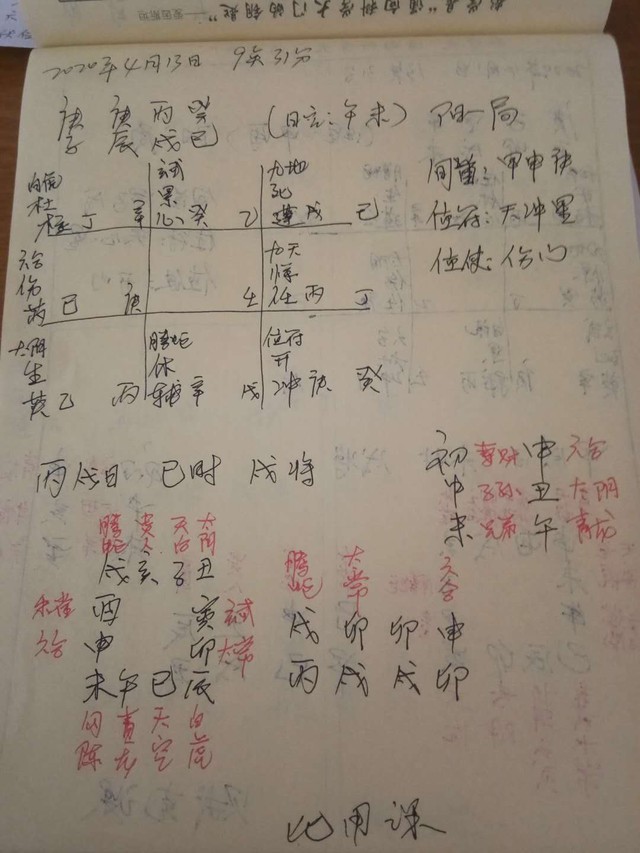 数学是“通向科学大门的钥匙”
2020年4月13日 9点31分
庚 庚 丙 癸
子 辰 戌 巳
(日空:午未) 阳一局
旬首:甲申庚
值符:天冲星
值使:伤门
白虎 玄武 九地
杜 景 死
丁 辛 心 癸 乙 蓬 戊 己
六合 九天
伤 惊
芮 己 庚 壬 任 丙 丁
太阴 腾蛇 值符
生 休 开
英 乙 丙 辅 辛 戊 冲 庚 癸
丙戌日 巳时 戌将
初 妻财 申 六合
中 子孙 丑 太阴
末 兄弟 午 青龙
腾蛇 贵人 天后 太阴
戌 亥 子 丑
朱雀 酉 寅 玄武
六合 申 卯 太常
未 午 巳 辰
勾陈 青龙 天空 白虎
腾蛇 太常 六合
戌 卯 卯 申
丙 戌 戌 卯
比用课